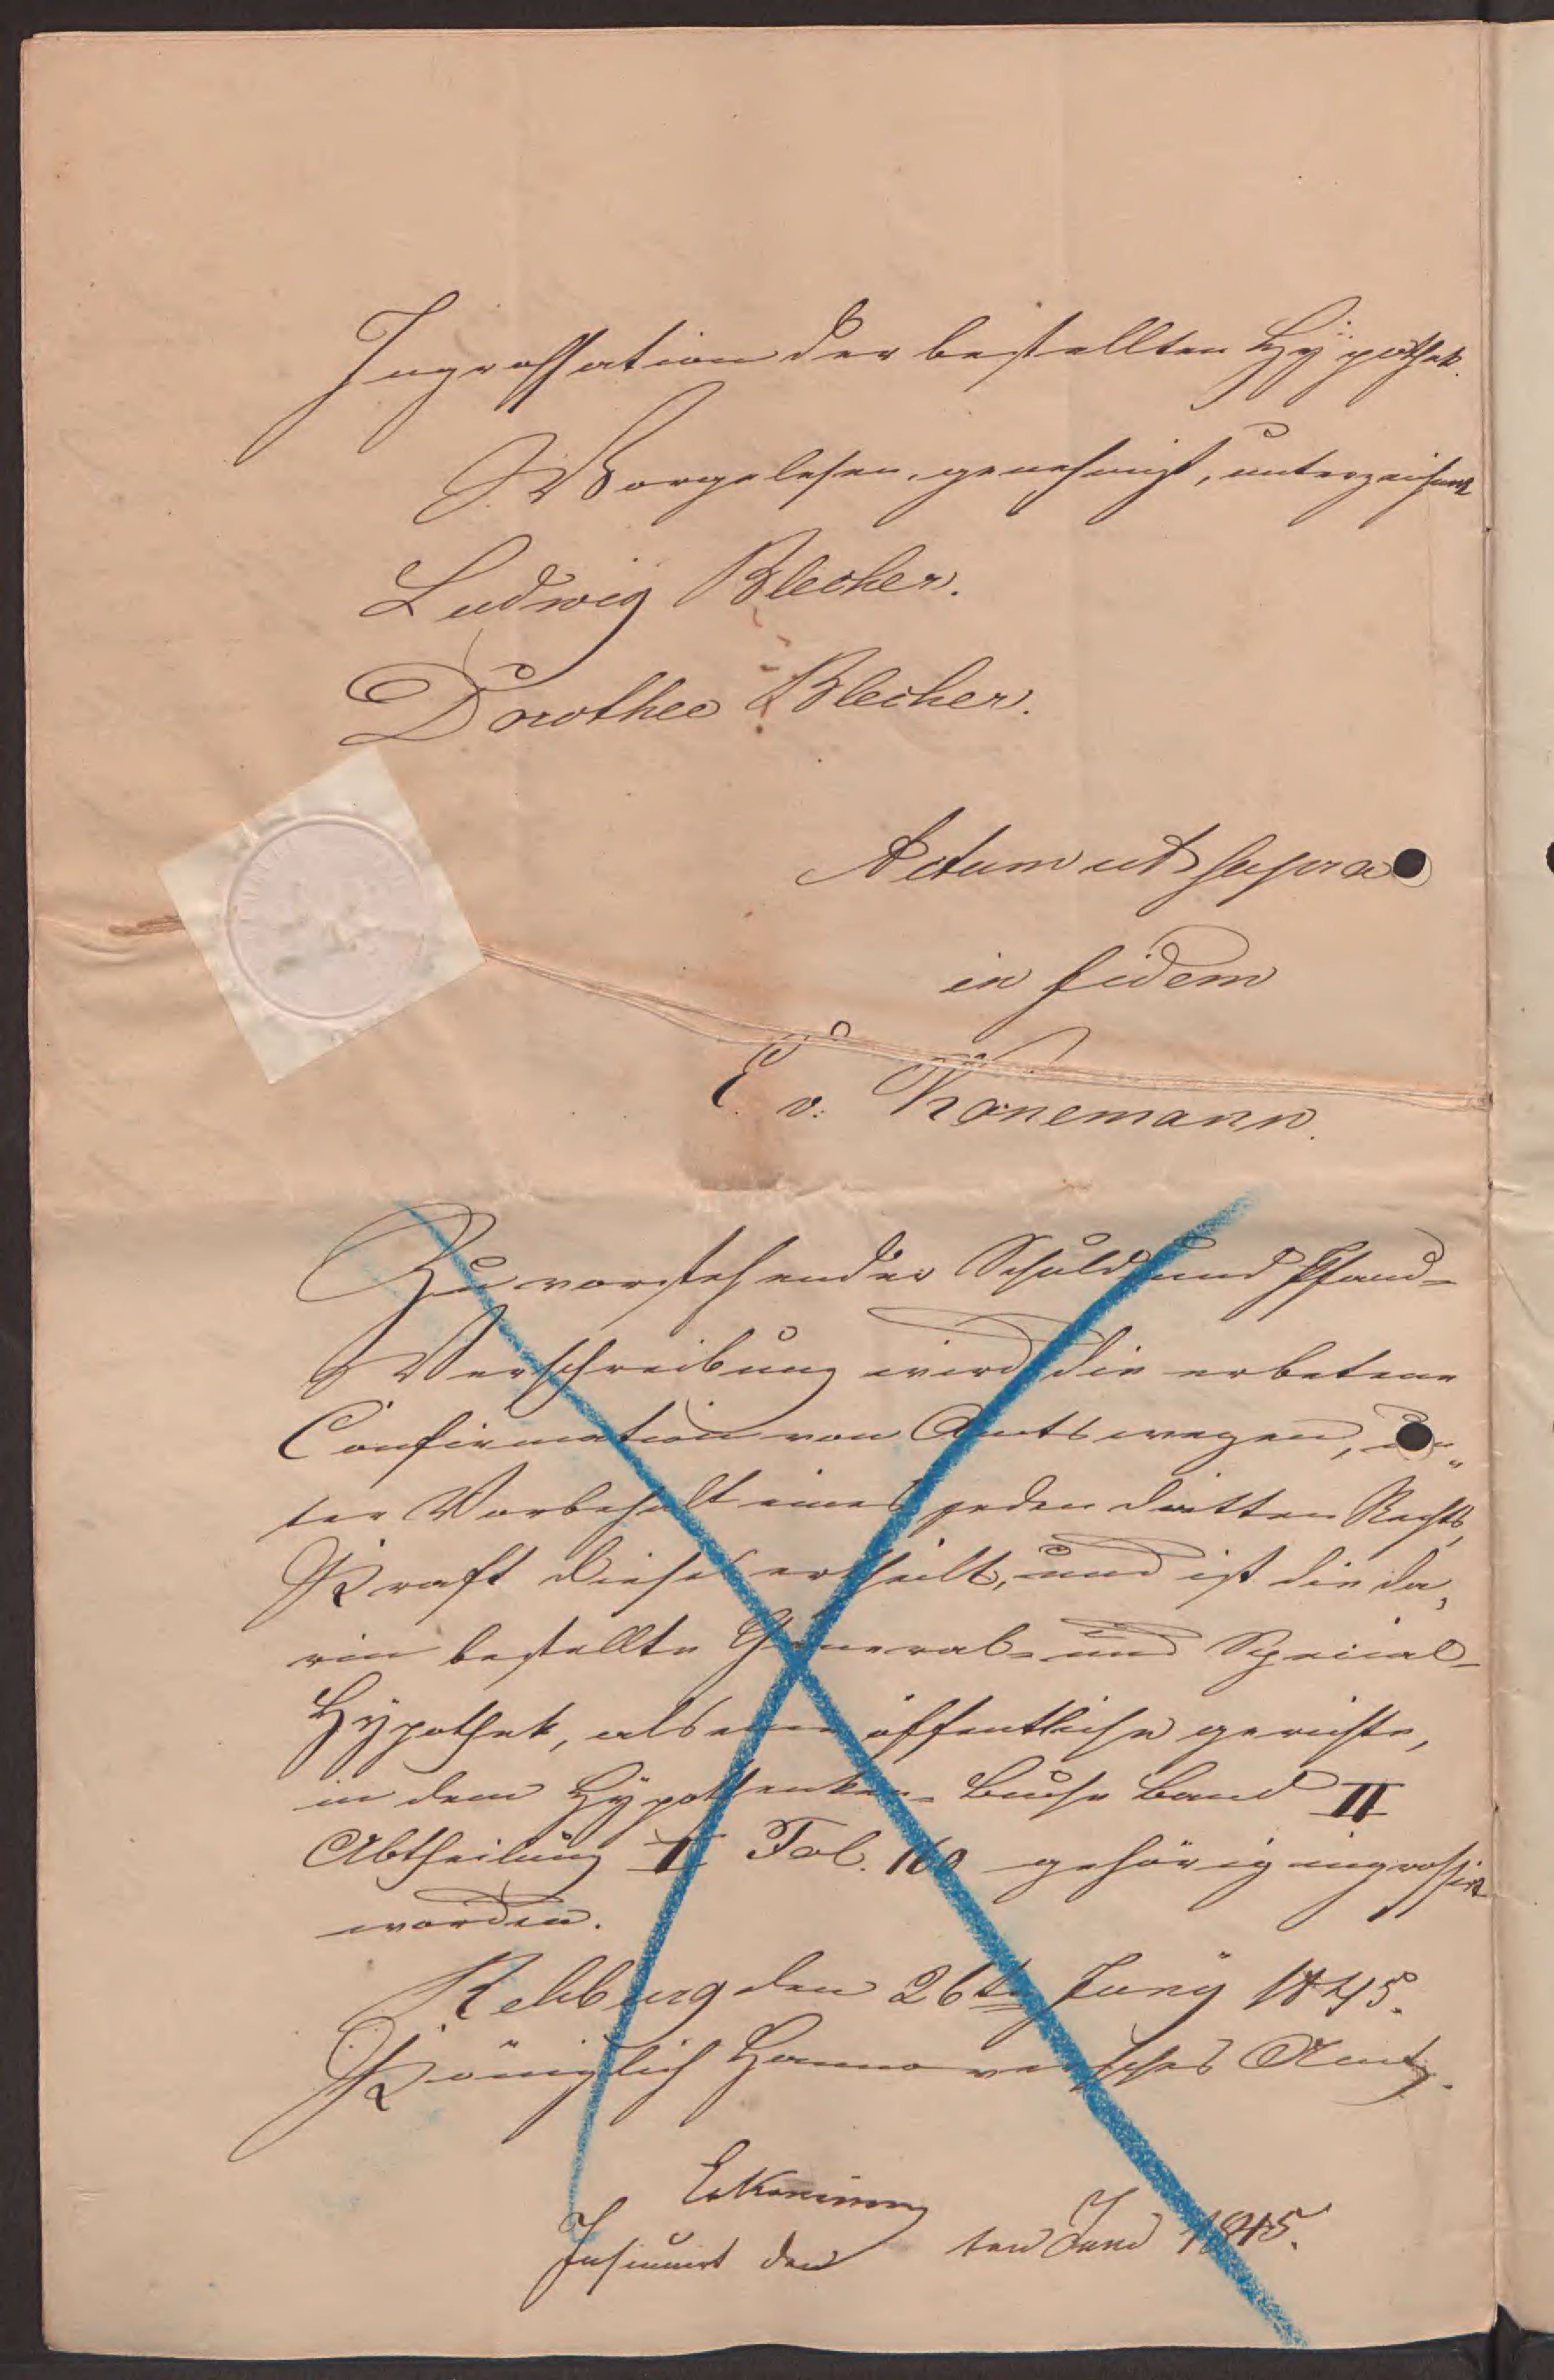 Ingrossation der bestellten Hÿpothek.
Vorgelesen, genehmigt, unterzeichnet
Ludwig Blecher.
Dorothee Blecher.
Actum ut supra
in fidem
E. v. Könemann.
Zu vorstehender Schuld und Pfand-
Verschreibung wird die erbetene
Confirmation von Amtswegen,
ter Vorbehalt eines jeden dritten Rechts,
Kraft dieses ertheilt, und ist die da,
rin bestellte General- und Special-
Hÿpothek, als eine öffentliche gerichts,
in dem Hÿpothenken-Buche Band II
Abtheilung I Fol. 160 gehörig ingrossirt
worden.
Rehburg den 26ten Junÿ 1845.
Königlich Hannoversches Amt.
Insinuirt den ten Juni 1845.